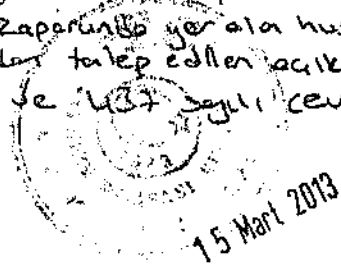 raporunda yer ala hu
dan talep edilen açık
ve 437 sayılı cev
15 Mart 2013